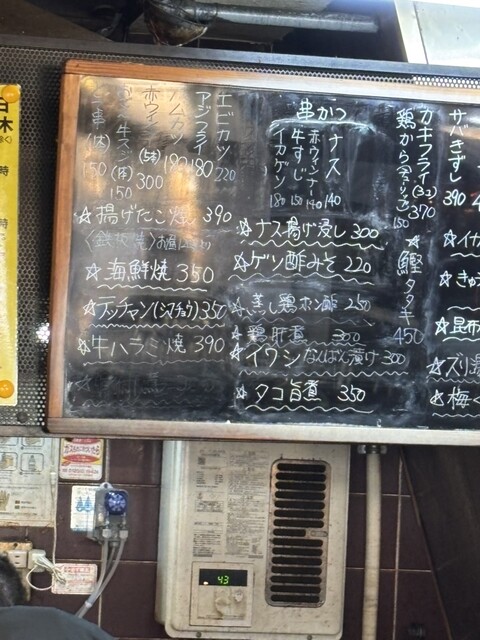 エビカツ 220
アジフライ 180
ハムカツ 180
赤ウィンナー (5本) 300
牛スジ (1本) 150
150
☆揚げたこ焼 390
〈鉄板焼〉
☆海鮮焼 350
☆テッチャン(シマチョウ) 350
☆牛ハラミ焼 390
串かつ
ナス 140
赤ウィンナー 140
牛すじ 150
イカゲソ 180
☆ナス揚げ浸し 300
☆ゲソ酢みそ 220
☆蒸し鶏ポン酢 250
☆鶏肝煮 300
☆イワシなんばん漬け 300
☆タコ旨煮 350
サバきずし 390
カキフライ(3コ) 370
鶏から 150
☆鰹タタキ 450
☆イカ
☆きゅう
☆昆布
☆ズリ湯
☆梅く
43